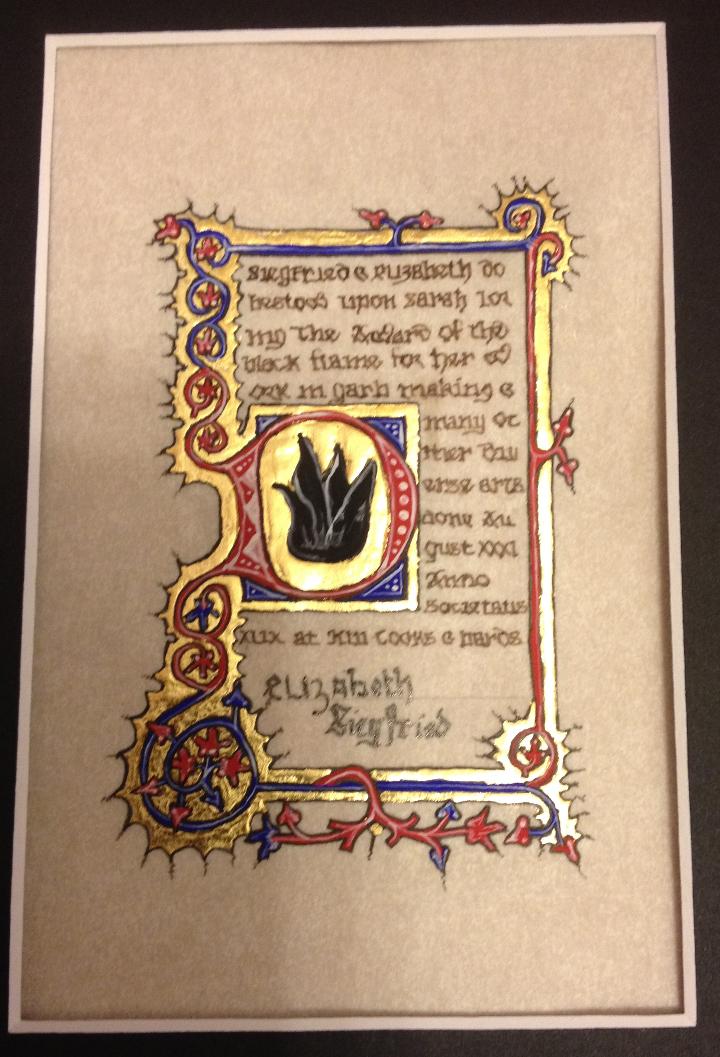 Siegfried & Elizabeth do
bestow upon Sarah Lor
ing the Award of the
black flame for her w
ork in garb making &
many ot
ther diu
erse arts
done Au
gust XXXI
Anno
Societatis
XLIX at Kin Cooks & bards
Elizabeth
Siegfried